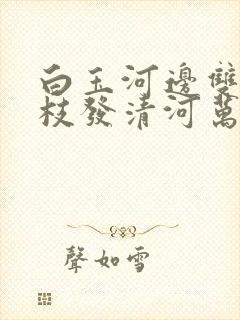 白玉河邊雙
枝發清河萬
聲如雪